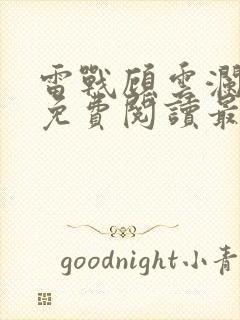 雷戰顧雲瀾
免費閱讀最
goodnight小青